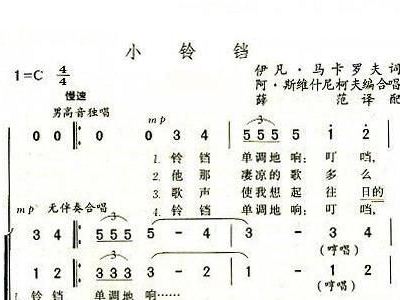 小 铃 铛
1=C 4/4
伊 凡·马 卡 罗 夫 词
慢速
阿·斯维什尼柯夫编合唱
男高音独唱
薛 范 译 配
mp 3
0 0 0 3 4 5 5 5 1 2
1. 铃 铛 单 调 地 响：叮 铛，
2. 他 那 凄 凉 的 歌 多 么
3. 歌 声 使 我 想 起 往 日的
4. 铃 铛 单 调 地 响：叮 铛，
mp 无伴奏合唱
3
3 4 5 5 5 5 - 4 3 - 4
(哼唱)
1 2 3 3 3 3 - 2 1 - 2
1. 铃 铛 单 调 地 响…… (哼唱)